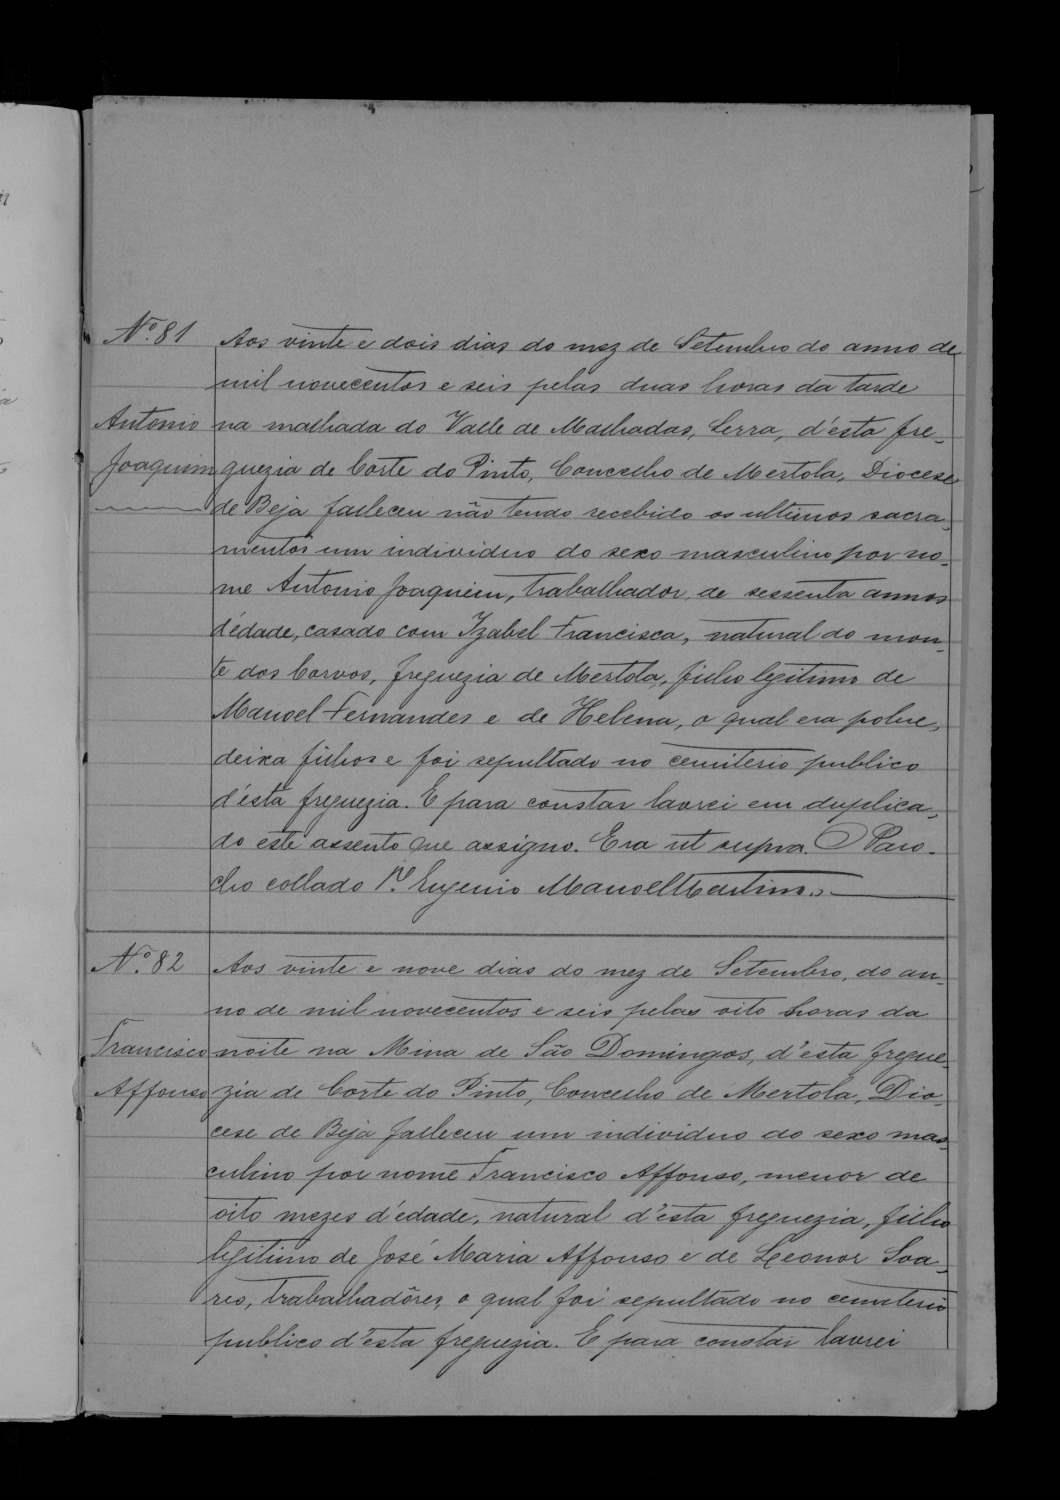 Nº 81
Antonio
Joaquim
Aos vinte e dois dias do mez de Setembro do anno de
mil novecentos e seis pelas duas horas da tarde
na malhada do Valle de Malhadas, Serra, d'esta fre-
guezia de Corte do Pinto, Concelho de Mertola, Diocese
de Beja falleceu não tendo recebido os ultimos sacra-
mentos um individuo do sexo masculino por no-
me Antonio Joaquim, trabalhador, de sessenta annos
d'édade, casado com Izabel Francisca, natural do mon-
te dos Corvos, freguezia de Mertola, filho legitimo de
Manoel Fernandes e de Helena, o qual era pobre,
deixa filhos e foi sepultado no cemiterio publico
d'ésta freguezia. E para constar lavrei em duplica-
do este assento que assigno. Era ut supra. O Paro-
cho collado Pe. Eugenio Manoel Martins.
Nº 82
Francisco
Affonso
Aos vinte e nove dias do mez de Setembro, do an-
no de mil novecentos e seis pelas oito horas da
noite na Mina de São Domingos, d'esta fregue-
zia de Corte do Pinto, Concelho de Mertola, Dio-
cese de Beja falleceu um individuo do sexo mas-
culino por nome Francisco Affonso, menor de
oito mezes d'édade, natural d'esta freguezia, filho
legitimo de José Maria Affonso e de Leonor Soa-
res, trabalhadôres, o qual foi sepultado no cemiterio
publico d'esta freguezia. E para constar lavrei